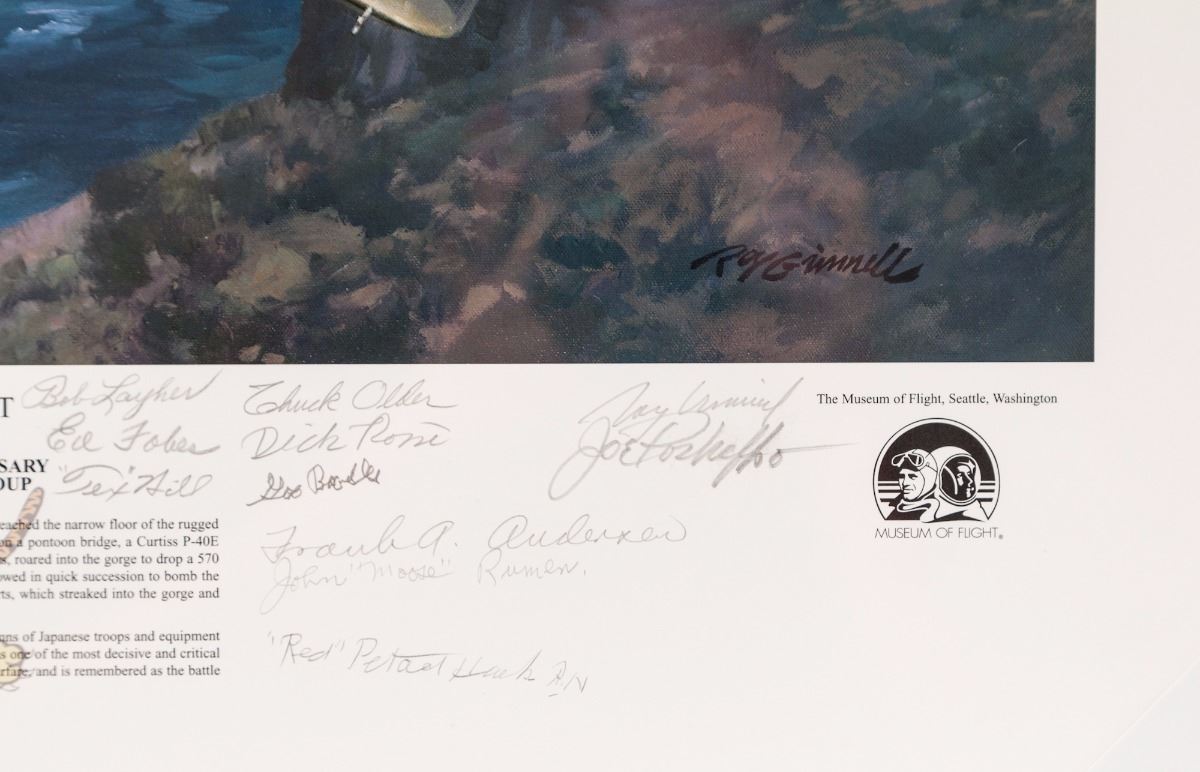 Roy Grinnell
T
Bob Layher
Chuck Older
Ed Fobes
Dick Rossi
"Tex" Hill
Joe Poshefko
Frank A. Andersen
John "Moose" Rumen.
"Red" Petach Hank R.N
The Museum of Flight, Seattle, Washington
MUSEUM OF FLIGHT®
SARY
OUP
eached the narrow floor of the rugged
on a pontoon bridge, a Curtiss P-40E
s, roared into the gorge to drop a 570
owed in quick succession to bomb the
rts, which streaked into the gorge and
ns of Japanese troops and equipment
s one of the most decisive and critical
rfare, and is remembered as the battle